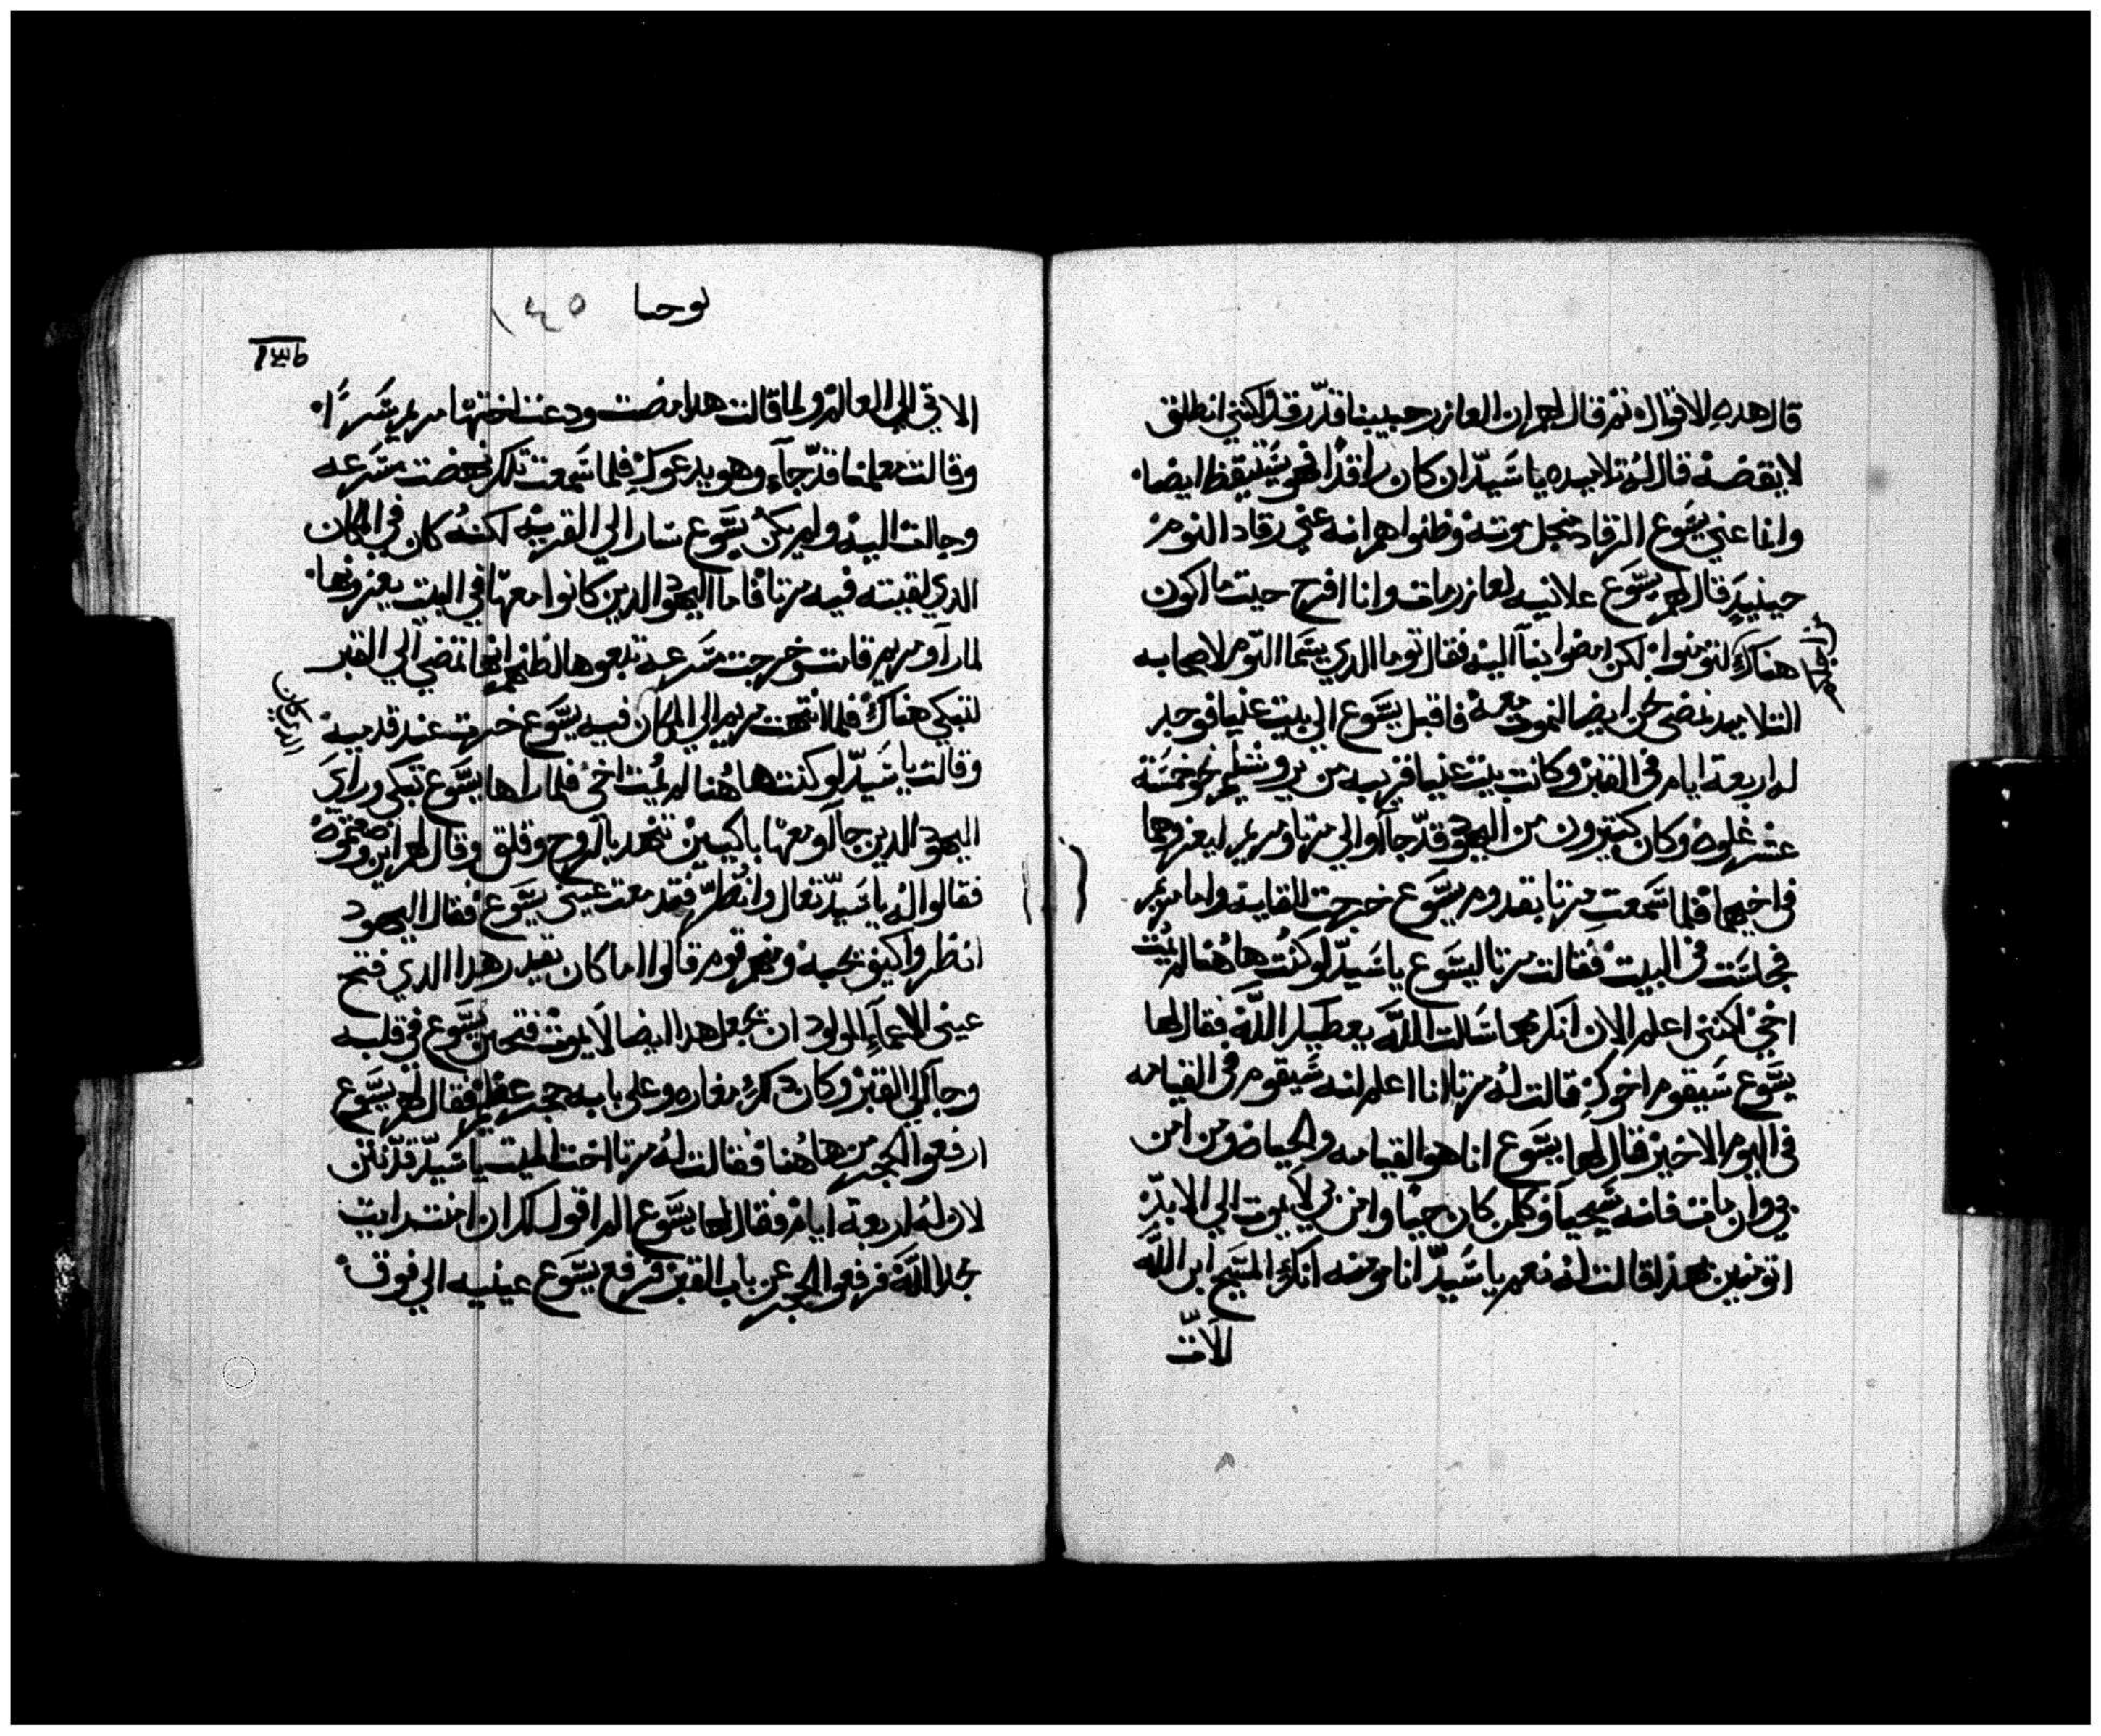 قال هده الاقوال ثم قال لهم ان العازر حبيبنا قد رقد ولكنني انطلق
لايقضه قال له تلاميده يا سيد ان كان راقدا فهو يستيقظ ايضا
وانما عني يسوع الرقاد منجل موته وظنوا هم انه عني رقاد النوم
حينيد قال لهم يسوع علانيه لعازر مات وانا افرح حيت ما اكون
هناك لتومنوا لكن امضوا بنا اليه فقال توما الدي يسما التوم لاصحابه
التلاميد نمضى نحن ايضا لنموت معه فاقبل يسوع الي بيت عنيا فوجد
له اربعة ايام في القبر وكانت بيت عنيا قريبه من يروشليم نحو خمسة
عشر غلوه وكان كتيرون من اليهود قد جاآوا الي مرتا ومريم ليعزوهما
في اخيهما فلما سمعت مرتا بقدوم يسوع خرجت للقايه واما مريم
فجلست في البيت فقالت مرتا ليسوع يا سيد لو كنت هاهنا لم يمت
اخي لكنني اعلم الان انك مهما سالت الله يعطيك الله فقال لها
يسوع سيقوم اخوك قالت له مرتا انا اعلم انه سيقوم في القيامه
في اليوم الاخير قال لها يسوع انا هو القيامه والحياه ومن امن
بي وان مات فانه سيحيا وكلمن كان حيا وامن بي لا يموت الي الابد
اتومنين بهذا قالت له نعم يا سيد انا مومنه انك المسيح ابن الله
الات
يوحنا ١٤٥
الاتي الي العالم ولما قالت هدا مضت ودعت اختها مريم سرا
وقالت معلمنا قد جاء وهو يدعوك فلما سمعت تلك نهضت مسرعه
وجات اليه ولم يكن يسوع سار الي القريه لكنه كان في المكان
الدي لقيته فيه مرتا فاما اليهود الدين كانوا معها في البيت يعزونها
لما راو مريم قامت وخرجت مسرعه تبعوها لظنهم انها تمضي الي القبر
لتبكي هناك فلما انتهت مريم الي المكان فيه يسوع خرت عند قدميه
الدي كان
وقالت يا سيد لو كنت هاهنا لم يمت اخي فلما راها يسوع تبكي وراي
اليهود الدين جاآو معها باكيين تنهد بالروح وقلق وقال لهم اين وضعتموه
فقالوا له يا سيد تعال وانظر فدمعت عيني يسوع فقال اليهود
انظروا كيف يحبه ومنهم قوم قالوا اما كان يقدر هدا الدي فتح
عيني الاعما المولود ان يجعل هدا ايضا لا يموت فتحنن يسوع في قلبه
وجا الي القبر وكان دلك مغاره وعلى بابه حجر عظيم فقال لهم يسوع
ارفعوا الحجر من هاهنا فقالت له مرتا اخت الميت يا سيد قد نتن
لان له اربعة ايام فقال لها يسوع الم اقول لك ان امنت رايت
مجد الله فرفعوا الحجر عن باب القبر فرفع يسوع عينيه الي فوق